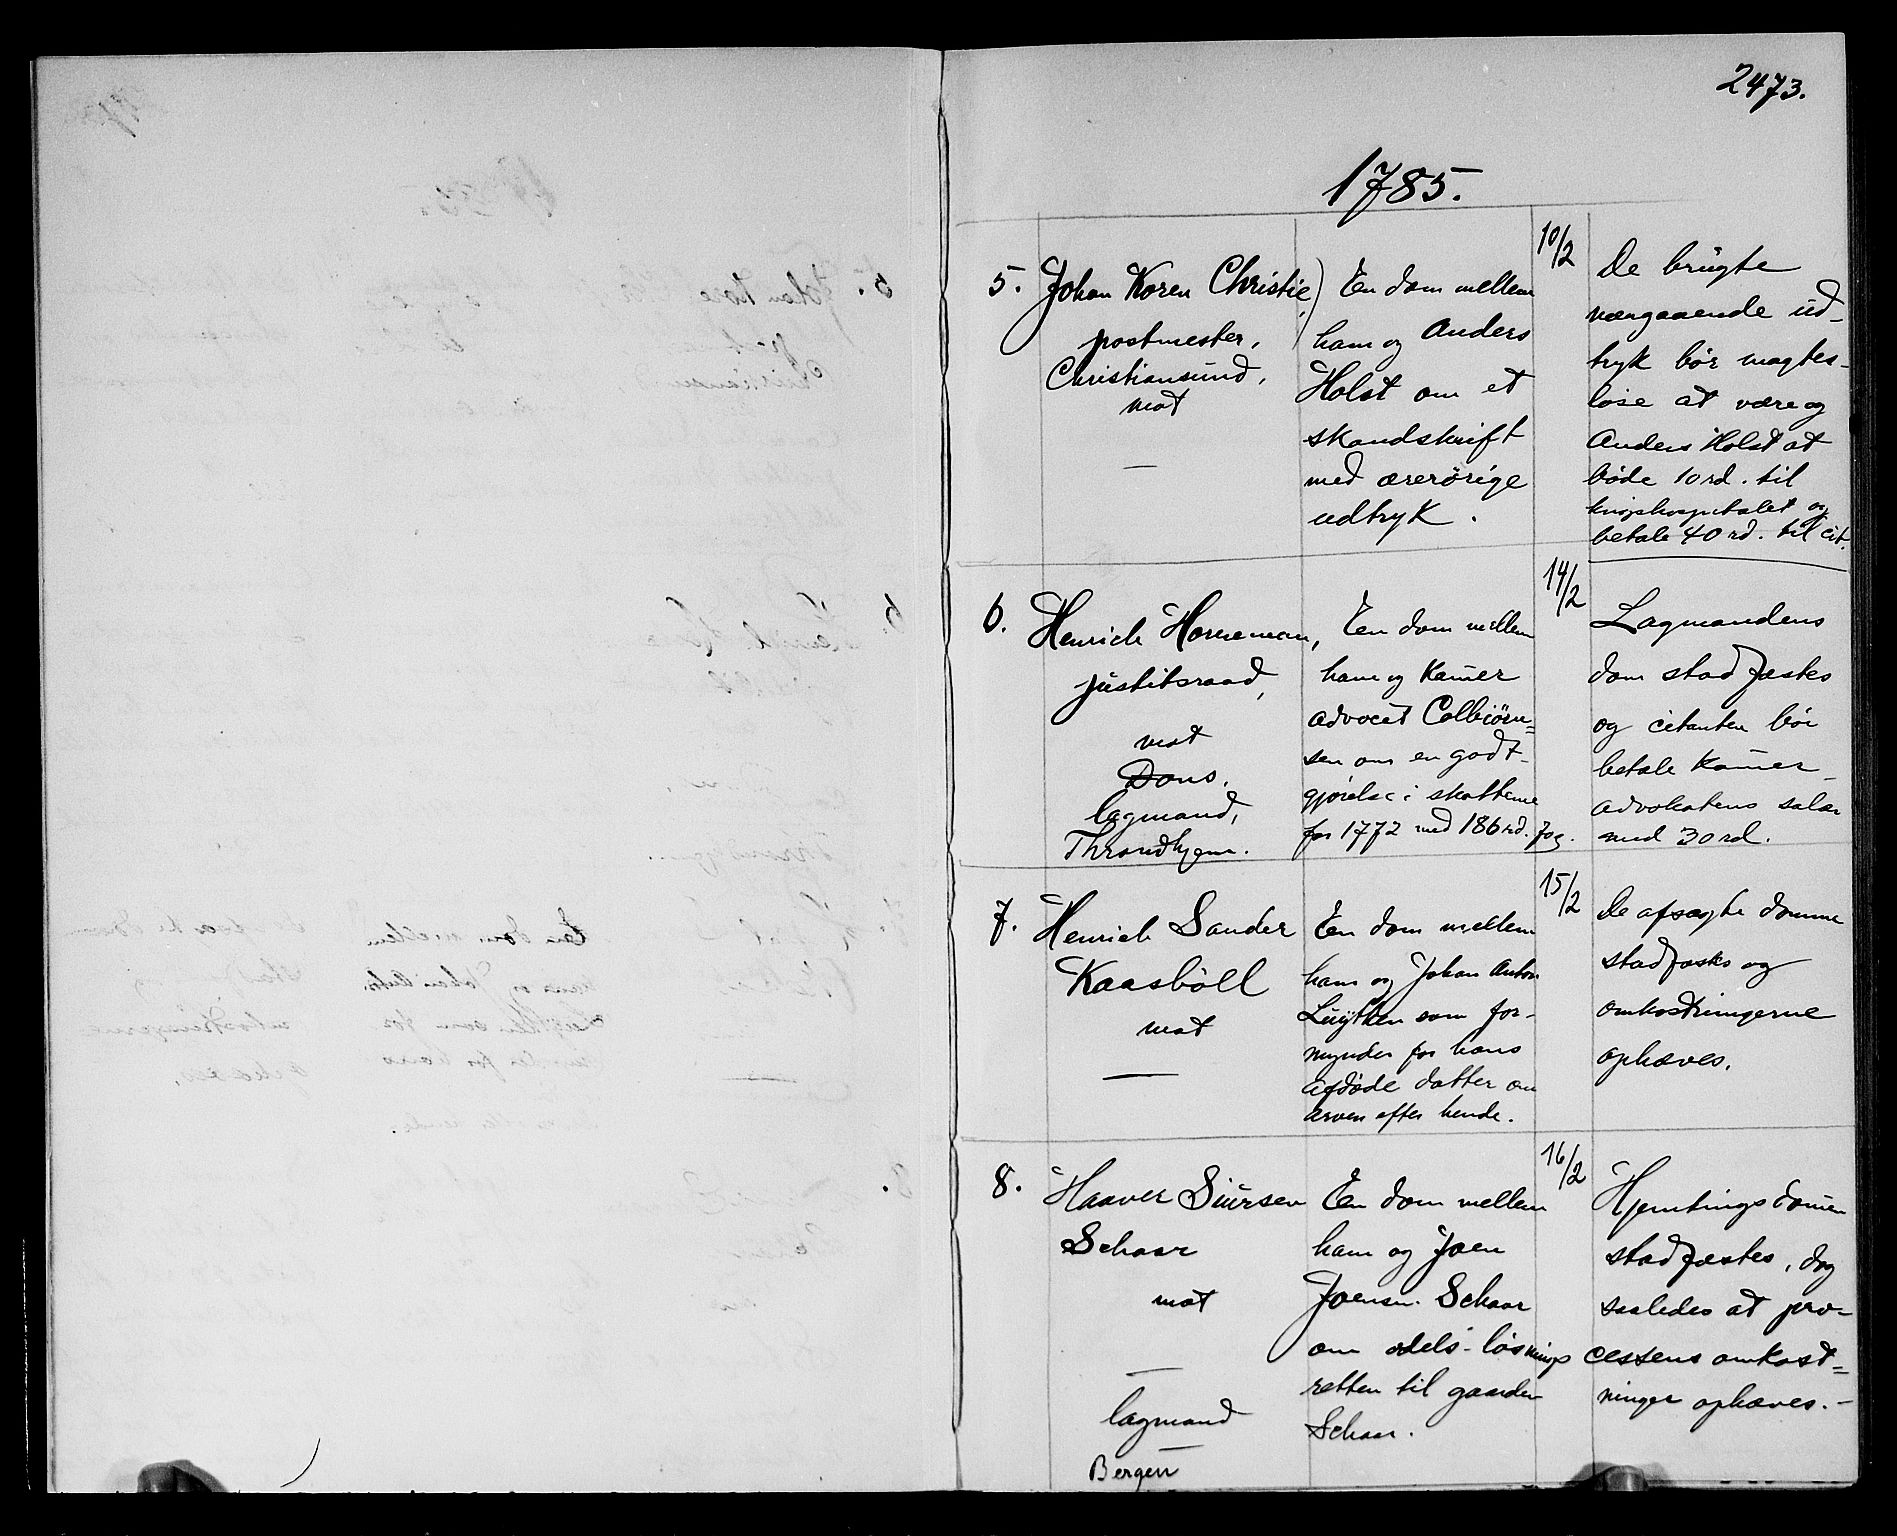 2473.
1785.
5. Johan Koren Christie,
postmester,
Christiansund,
mot
—
En dom mellem
ham og Anders
Holst om et
skandskrift
med ærerörige
udtryk.
10/2
De brugte
nærgaaende ud-
tryk bör magtes-
löse at være og
Anders Holst at
böde 10 rd. til
krigshospitalet og
betale 40 rd. til cit.
6. Henrich Horneman,
justitsraad,
mot
Dons,
lagmand,
Throndhjem.
En dom mellem
ham og Kam̄er
advocat Colbiörn=
sen om en godt-
gjörelse i skatterne
for 1772 med 186 rd.
14/2
Lagmandens
dom stadfæstes
og citanten bör
betale Kam̄er-
advokatens salær
med 30 rd.
7. Henrich Sander
Kaasböll
mot
—
En dom mellem
ham og Johan Anton
Luÿtken som for-
mynder for hans
afdöde datter om
arven efter hende.
15/2
De afsagte domme
stadfæstes og
omkostningerne
ophæves.
8. Haaver Siursen
Schaar
mot
—
lagmand
Bergen
En dom mellem
ham og Joen
Joensen Schaar
om odels-lösnings
retten til gaarden
Schaar.
16/2
Hjemtingsdom̄en
stadfæstes, dog
saaledes at pro-
cessens omkost=
ninger ophæves.-